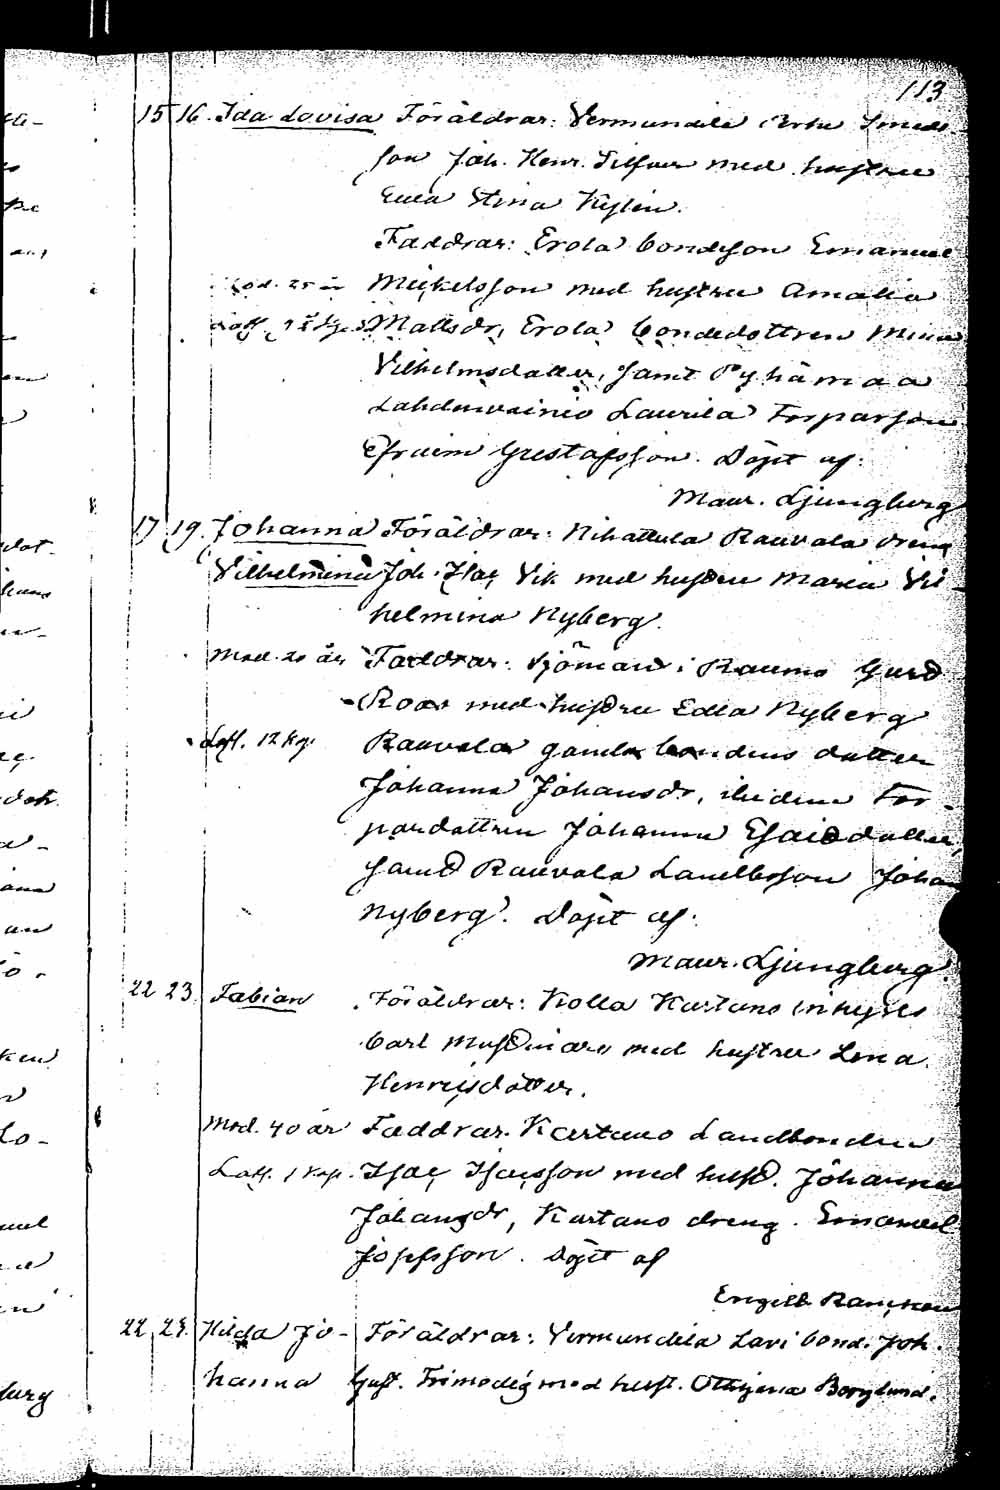 113
15 16. Ida Lovisa Föräldrar: Vermundila Smeds
son Joh. Henr. Silfver med hustru
Eva Stina Kylén.
Faddrar: Erola bondeson Emanuel
Mod. 25 år Mickelsson med hustru Amalia
Mattsdr, Erola bondedottren Mina
Vilhelmsdotter, samt Pyhämaa
Lahdenvainio Laurila Torparson
Efraim Gustafsson. Döpt af:
Maur. Ljungberg
17 19. Johanna Föräldrar: Nihattula Rauvola dreng
Vilhelmina Joh. Isac Vik med hustru Maria Vil-
helmina Nyberg.
Mod. 20 år Faddrar: Sjöman i Raumo Gust
Roos med hustru Edla Nyberg
Laff. 12 kp. Rauvola gamla bondens dotter
Johanna Johansdr, Tor-
pardottren Johanna Esaidotter,
samt Rauvola Landboson Johan
Nyberg. Döpt af:
Maur. Ljungberg.
22 23. Fabian Föräldrar: Kolla Kartano inhyses
Carl med hustru Lena
Henricsdotter.
Mod. 40 år Faddrar. Kartano Landbonden
Laff. 1 kap. Isac Isacsson med hust. Johanna
Johansdr, Kartano dreng Emanuel
Döpt af
Engelb. Rancken
22 24. Hilda Jo- Föräldrar: Vermundila Lavi bond. Joh.
hanna Gust. Frimodig med hust. Berglund.